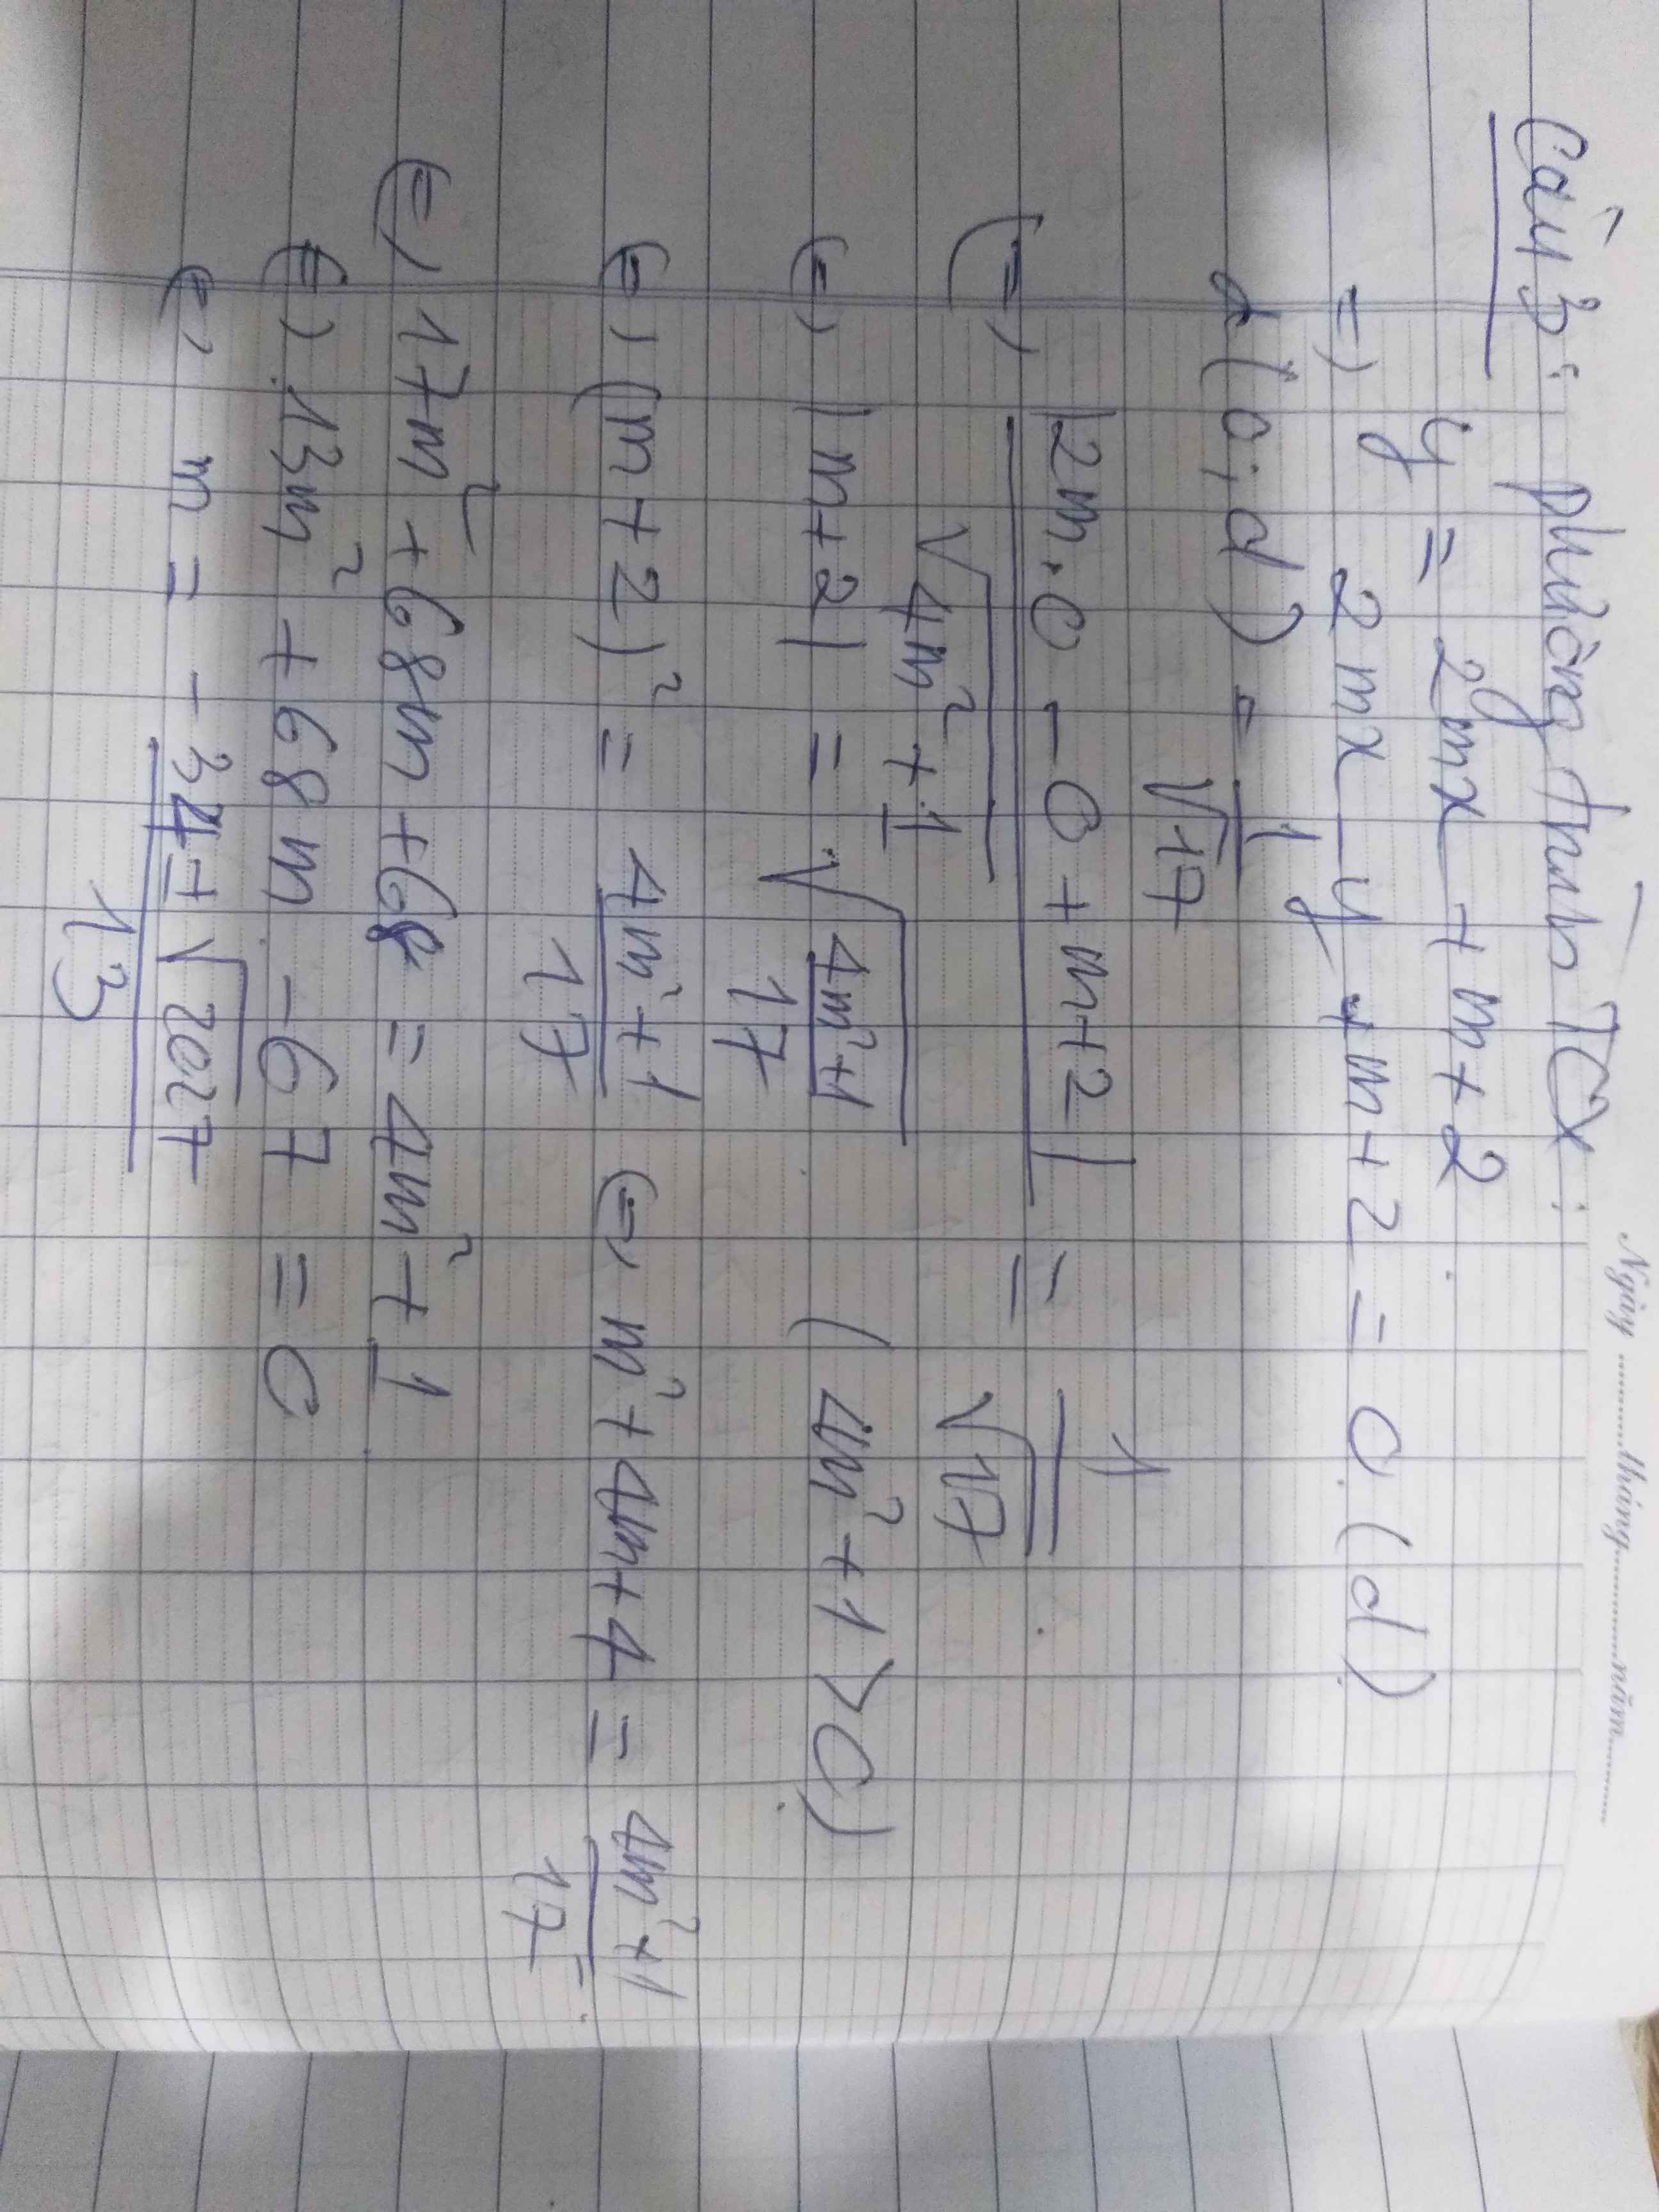 Ngày ............tháng............năm............
Câu 3: phương trình TCX:
y = 2mx + m + 2
=) 2mx - y + m + 2 = 0 (d)
d(0; d) = 1/√17
(=) |2m.0 - 0 + m+2| / √4m² + 1 = 1/√17
(=) |m+2| = √(4m²+1)/17 (4m² + 1 > 0)
(=) (m+2)² = (4m²+1)/17 (=) m² + 4m + 4 = (4m²+1)/17
(=) 17m² + 68m + 68 = 4m² + 1
(=) 13m² + 68m - 67 = 0
(=) m = (-34 ± √2027)/13